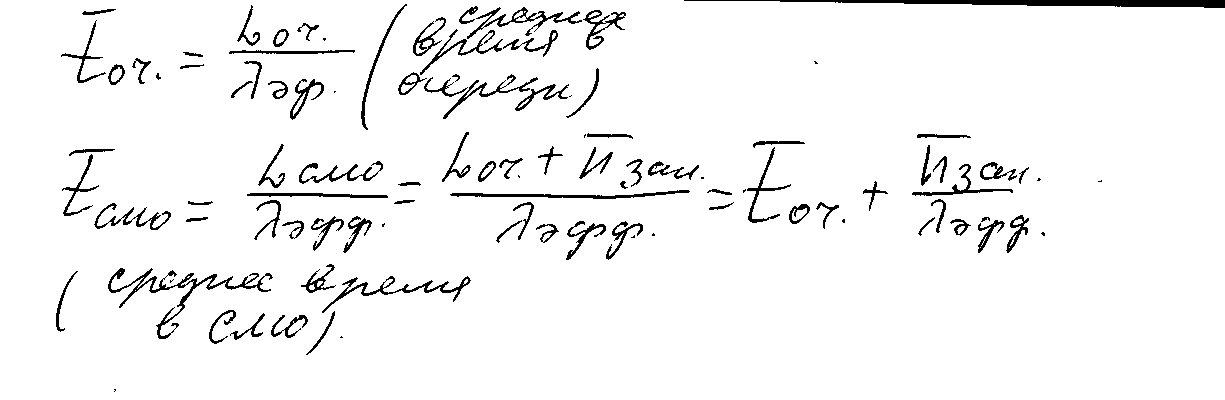 t̄оч. = Lоч. / λэф. (среднее время в очереди)
t̄смо = Lсмо / λэфф. = (Lоч. + n̄зан.) / λэфф. = t̄оч. + n̄зан. / λэфф.
(среднее время
в СМО).